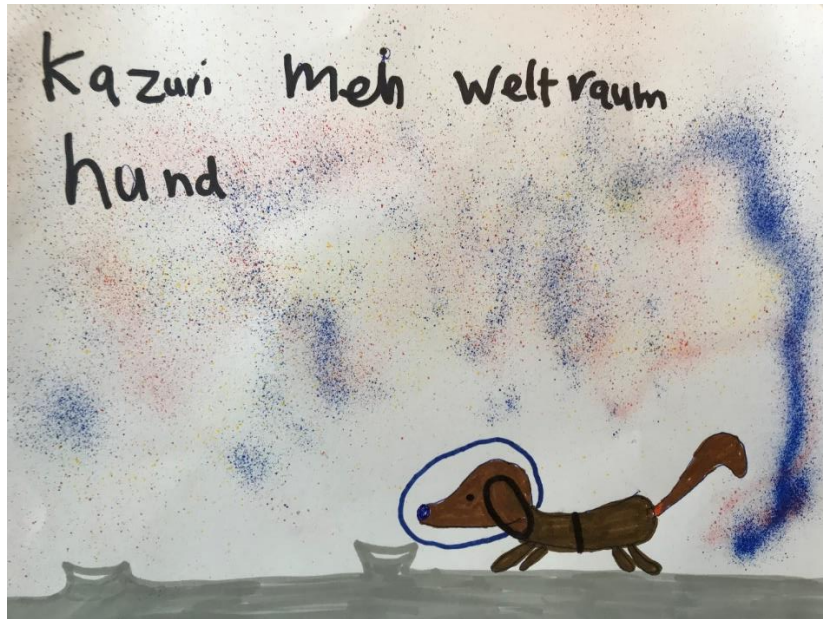 Kazuri Mein Weltraum
hund